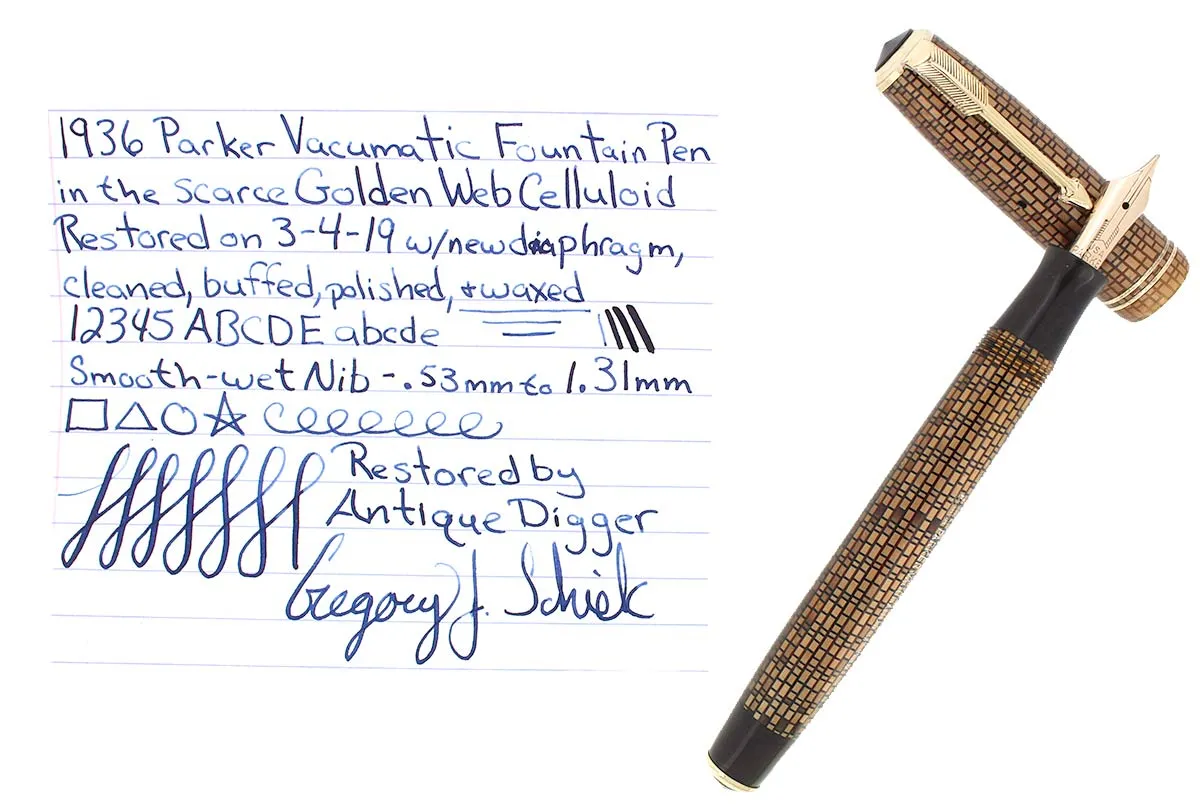 1936 Parker Vacumatic Fountain Pen
in the scarce Golden Web Celluloid
Restored on 3-4-19 w/new diaphragm,
cleaned, buffed, polished, + waxed
12345 ABCDE abcde
Smooth-wet Nib - .53mm to 1.31mm
Restored by
Antique Digger
Gregory J. Schiek